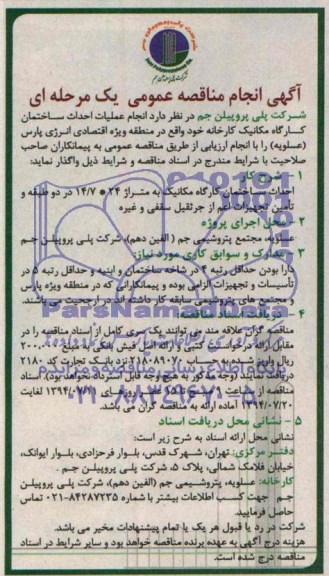 شرکت پلی پروپیلن جم
آگهی انجام مناقصه عمومی یک مرحله ای
شرکت پلی پروپیلن جم در نظر دارد انجام عملیات احداث ساختمان
کارگاه مکانیک کارخانه خود واقع در منطقه ویژه اقتصادی انرژی پارس
(عسلویه) را با انجام ارزیابی از طریق مناقصه عمومی به پیمانکاران صاحب
صلاحیت با شرایط مندرج در اسناد مناقصه و شرایط ذیل واگذار نماید:
۱ - شرح کار
احداث ساختمان کارگاه مکانیک به متراژ ۲۴ * ۱۴/۷ در دو طبقه و
تأمین تجهیزات اعم از جرثقیل سقفی و غیره
۲ - محل اجرای پروژه
عسلویه، مجتمع پتروشیمی جم (الفین دهم)، شرکت پلی پروپیلن جم
۳ - مدارک و سوابق کاری مورد نیاز:
دارا بودن حداقل رتبه ۴ در شاخه ساختمان و ابنیه و حداقل رتبه ۵ در
تأسیسات و تجهیزات الزامی بوده و پیمانکارانی که در منطقه ویژه پارس
و مجتمع های پتروشیمی سابقه کار داشته اند در ارجحیت می باشند.
۴ - دریافت اسناد مناقصه
مناقصه گران علاقه مند می توانند یک سری کامل از اسناد مناقصه را در
مقابل ارائه درخواست کتبی و ارائه اصل فیش بانکی به مبلغ
ریال واریز شده به حساب ۲۱۸۰۸۹۰۷۰ نزد بانک تجارت کد ۲۱۸۰
دریافت نمایند (وجه مذکور به هیچ وجه قابل استرداد نخواهد بود). اسناد
مناقصه از ساعت الی روزهای لغایت
۱۳۹۴/۰۷/۲۰ آماده ارائه به مناقصه گران می باشد.
۵ - نشانی محل دریافت اسناد
نشانی محل ارائه اسناد به شرح زیر است:
دفتر مرکزی: تهران، شهرک قدس، بلوار فرحزادی، بلوار ایوانک،
خیابان فلامک شمالی، پلاک ۵، شرکت پلی پروپیلن جم.
کارخانه: عسلویه، پتروشیمی جم (الفین دهم)، شرکت پلی پروپیلن
جم جهت کسب اطلاعات بیشتر با شماره ۸۴۲۸۷۲۳۵-۰۲۱ تماس
حاصل فرمایید.
شرکت در رد یا قبول هر یک یا تمام پیشنهادات مخیر می باشد.
هزینه درج آگهی به عهده برنده مناقصه خواهد بود و سایر شرایط در اسناد
مناقصه درج شده است.
ParsNamadData
پایگاه اطلاع رسانی مناقصه و مزایده
۰۲۱-۸۸۳۴۹۶۷۰-۵